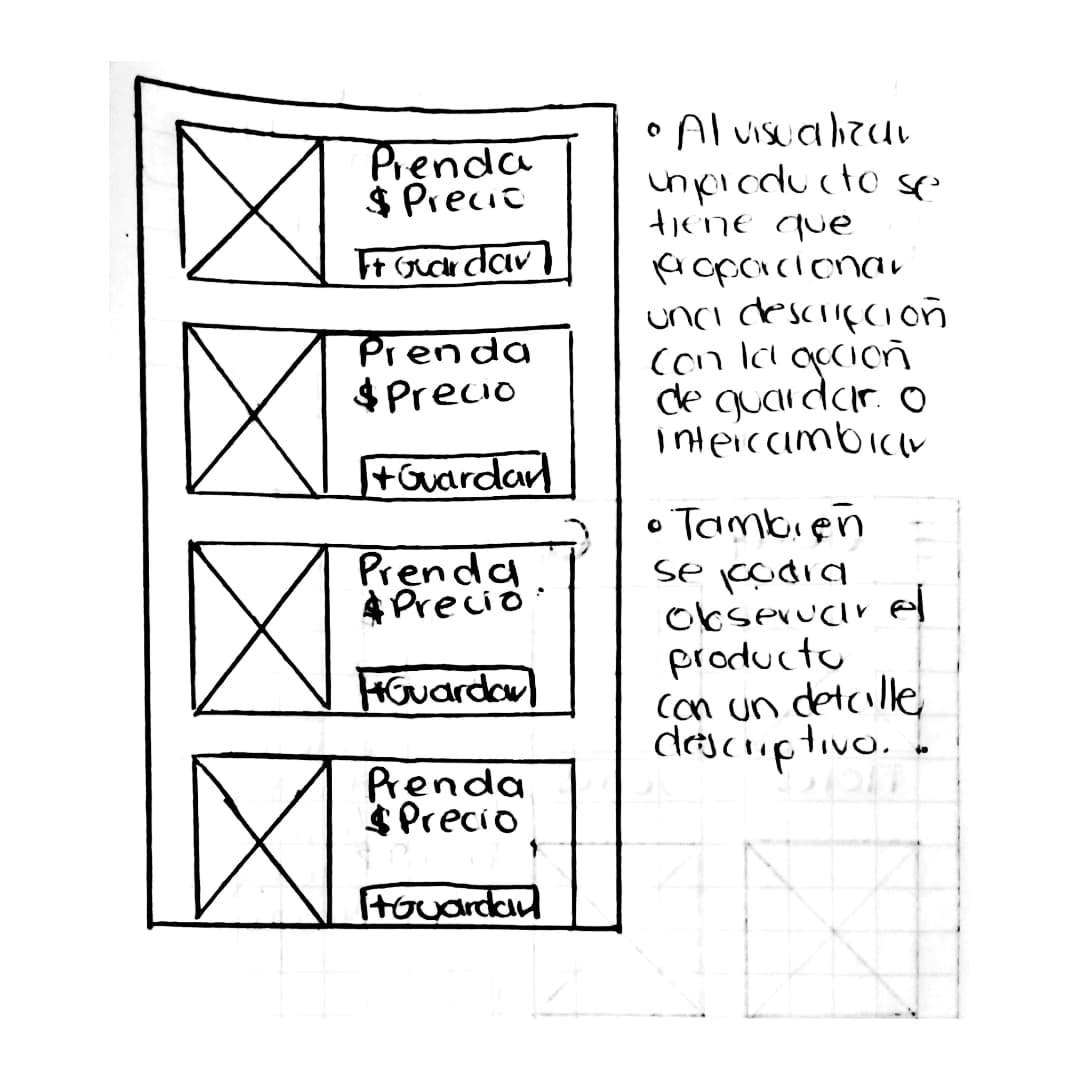 Prenda
$ Precio
+ Guardar
Prenda
$ Precio
+Guardar
Prenda
$ Precio
+Guardar
Prenda
$ Precio
+Guardar
• Al visualizar
un producto se
tiene que
proporcionar
una descripción
con la acción
de guardar o
intercambiar
• También
se podra
observar el
producto
con un detalle
descriptivo.